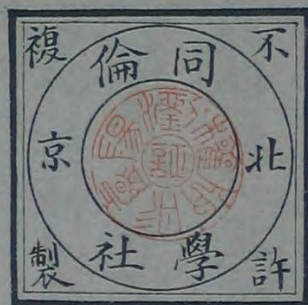 不許複製
北京
同倫
學社